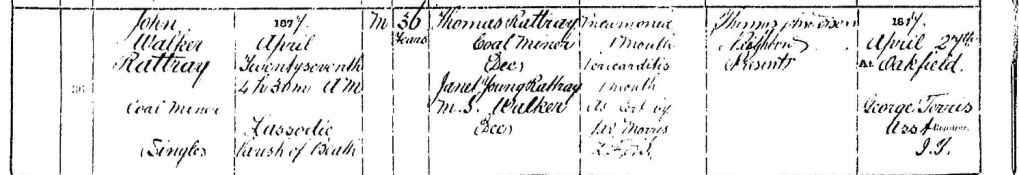 36
John
Walker
Rattray
Coal Miner
Single
1877.
April
Twentyseventh
4 h 30 m A M
Lassodie
Parish of Beath
M
36
Years
Thomas Rattray
Coal Miner
Decd
Janet Young Rattray
M.S. Walker
Decd
Pneumonia
1 Month
Pericarditis
1 month
As Cert by
Morris
Thomas
Neighbour
Present
1877.
April 27th
At Oakfield.
George Torris
Asst Registrar